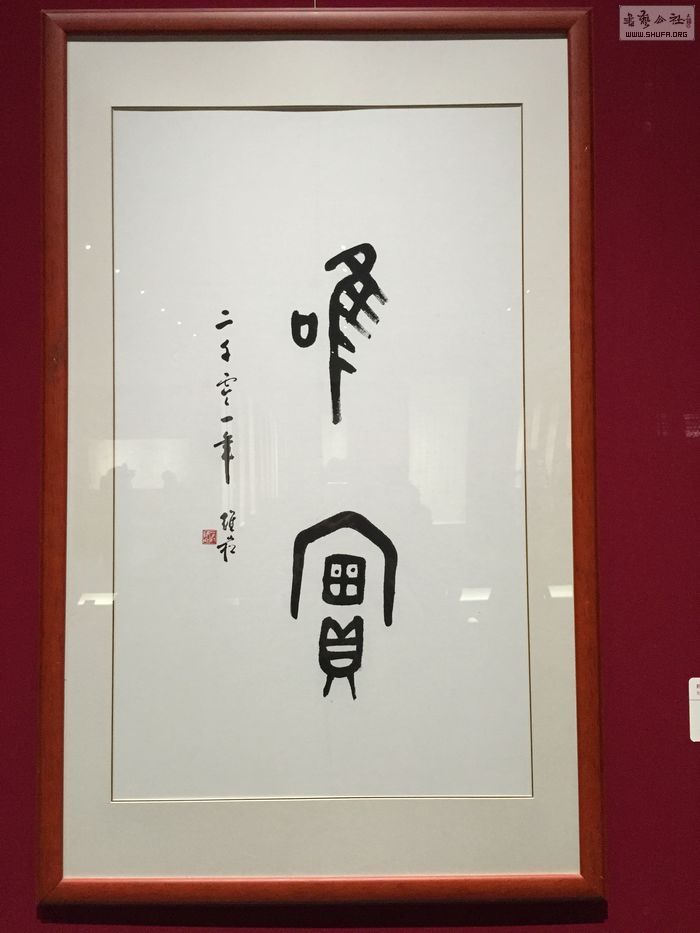 書藝公社
WWW.SHUFA.ORG
唯實
二千零一年 維崧